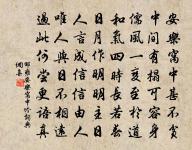 安樂窩中甚不貧
中間有榻可容身
儒風一變至於道
和氣四時長若春
日月作明明主日
人言成信信由人
唯人與日不相遠
過此何嘗更語真
邵雍安樂窩中吟詞典
網集